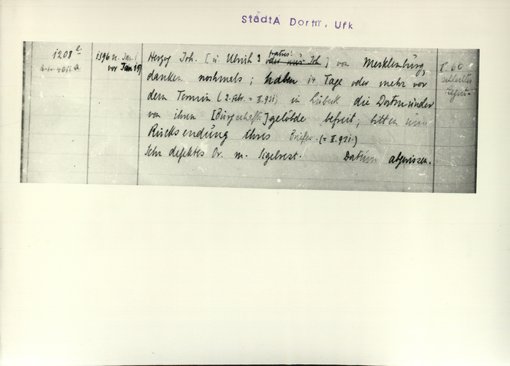 StadtA Dortm. Urk
1208
1396 vor Jan 19
Herzog Joh. [u Ulrich? von Mecklenburg
danken nochmals; haben 14 Tage oder mehr vor
dem Termin (2. Febr. = II. 931) in Lübeck die Dortmunder
von ihnen [Bürgschafts]gelübde befreit, bitten um
Rücksendung ihres Briefes (= II. 931.)
Sehr defektes Or. m. Siegelrest. Datum abgerissen.